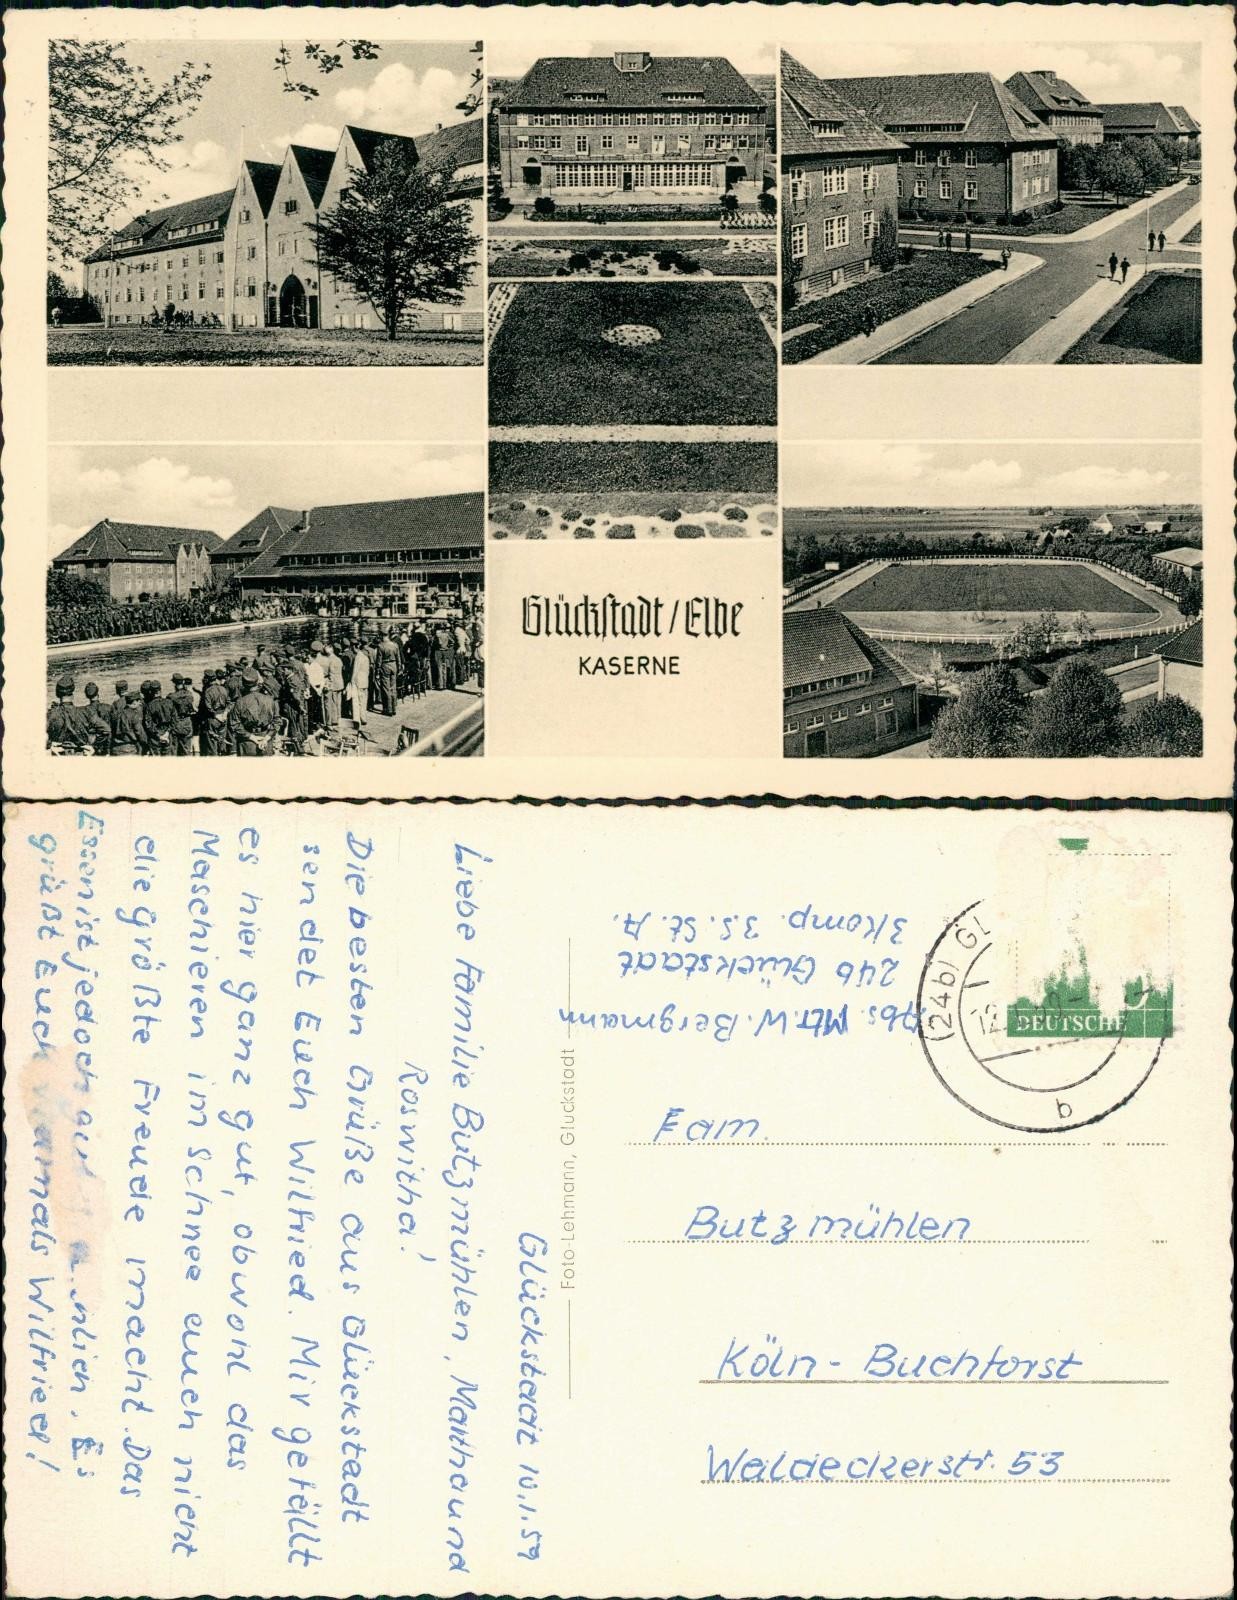 Glückstadt/Elbe
KASERNE
Glückstadt 10.1.59
Liebe Familie Butzmühlen, Martha und
Roswitha!
Die besten Grüße aus Glückstadt
sendet Euch Wilfried. Mir gefällt
es hier ganz gut, obwohl das
Maschieren im Schnee auch nicht
die größte Freude macht. Das
Essen ist jedoch gut. Es
grüßt Euch vielmals Wilfried!
Foto-Lehmann, Glückstadt
Abs. Mtr. W. Bergmann
24b Glückstadt
3 Komp. 3.S. St. A.
(24b) GL
b
DEUTSCHE
Fam.
Butzmühlen
Köln-Buchforst
Waldeckerstr. 53